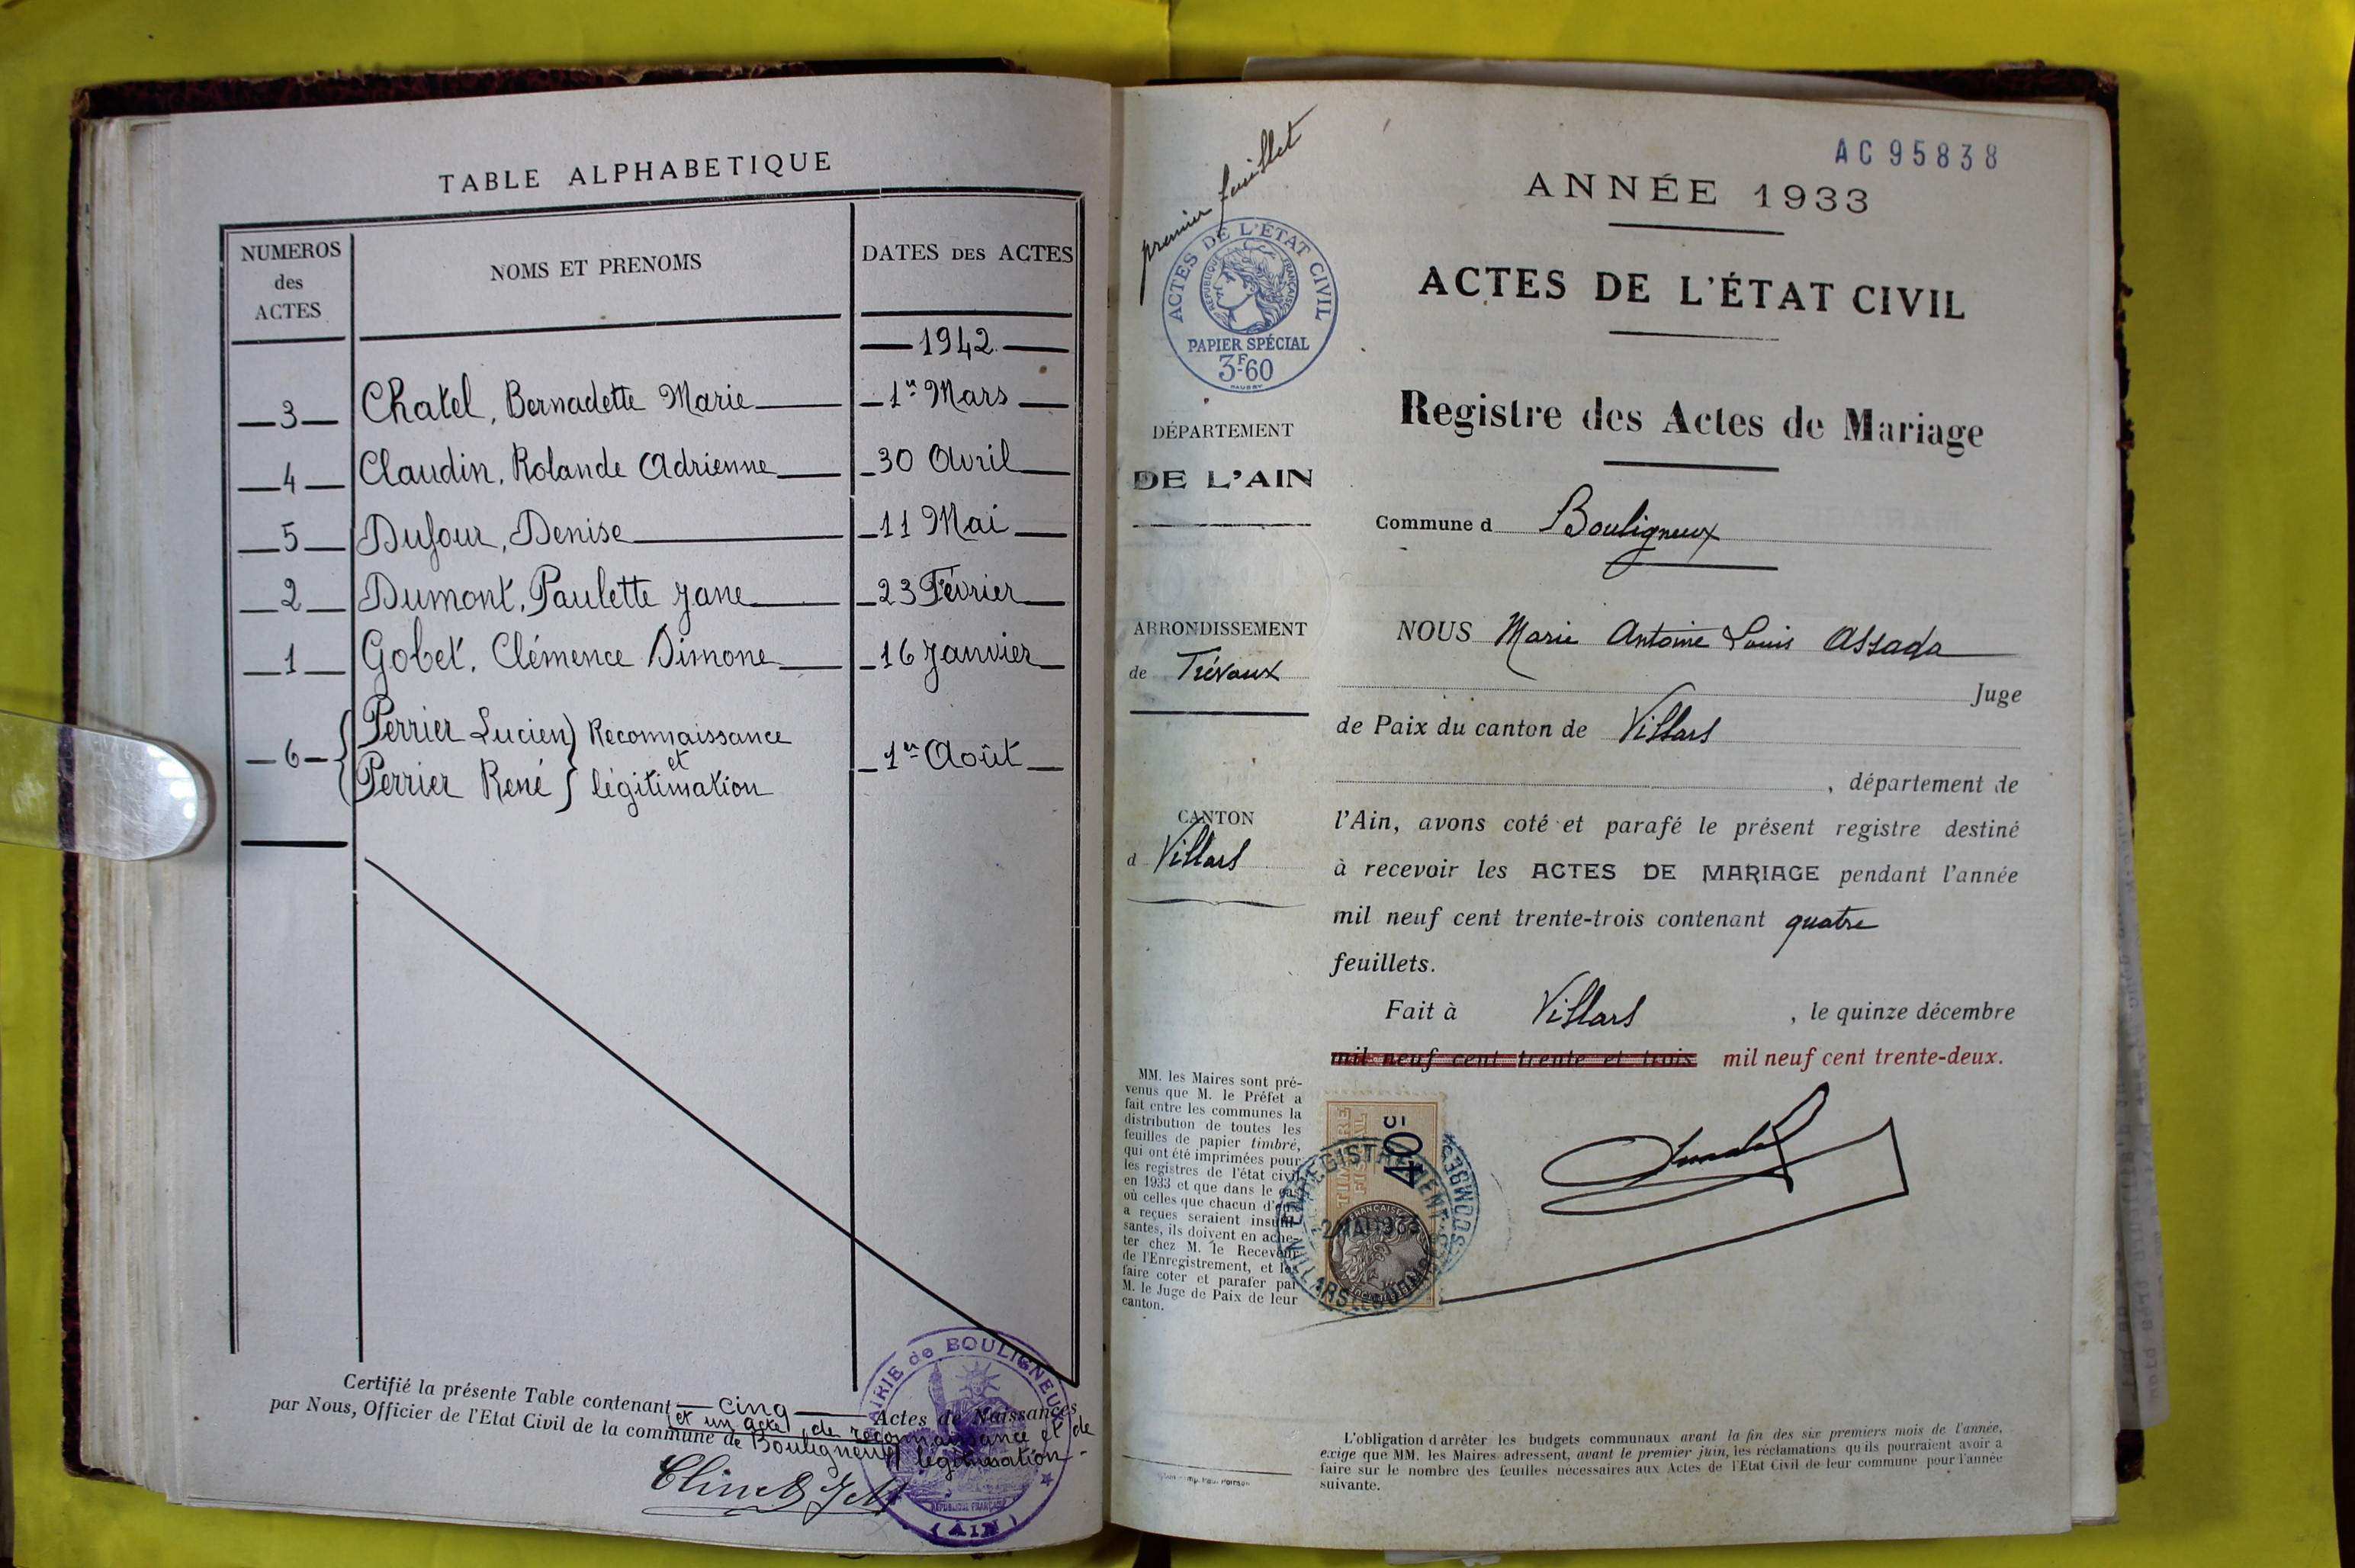 TABLE ALPHABETIQUE
NUMEROS
des
ACTES
NOMS ET PRENOMS
DATES DES ACTES
1942
3 Chatel, Bernadette Marie 1er Mars
4 Claudin, Rolande Adrienne 30 Avril
5 Dufour, Denise 11 Mai
2 Dumont, Paulette Jane 23 Février
1 Gobet, Clémence Simone 16 Janvier
Perrier Lucien) Reconnaissance
6 et 1er Août
Perrier René légitimation
Certifié la présente Table contenant cinq Actes de Naissances
(et un acte) de reconnaissance et de
par Nous, Officier de l'Etat Civil de la commune de Bouligneux légitimation
MAIRIE de BOULIGNEUX
RÉPUBLIQUE FRANÇAISE
(AIN)
premier feuillet
ACTES DE L'ÉTAT CIVIL
RÉPUBLIQUE FRANÇAISE
PAPIER SPÉCIAL
3F60
DÉPARTEMENT
DE L'AIN
ARRONDISSEMENT
de Trévoux
CANTON
d Villars
MM. les Maires sont pré-
venus que M. le Préfet a
fait entre les communes la
distribution de toutes les
feuilles de papier timbré,
qui ont été imprimées pour
les registres de l'état civil
en 1933 et que dans le cas
où celles que chacun d'eux
a reçues seraient insuffi-
santes, ils doivent en ache-
ter chez M. le Receveur
de l'Enregistrement, et les
faire coter et parafer par
M. le Juge de Paix de leur
canton.
AC 95838
ANNÉE 1933
ACTES DE L'ÉTAT CIVIL
Registre des Actes de Mariage
Commune d Bouligneux
NOUS Marie Antoine Louis Assada
Juge
de Paix du canton de Villars
, département de
l'Ain, avons coté et parafé le présent registre destiné
à recevoir les ACTES DE MARIAGE pendant l'année
mil neuf cent trente-trois contenant quatre
feuillets.
Fait à Villars , le quinze décembre
mil neuf cent trente et trois mil neuf cent trente-deux.
TIMBRE
FISCAL
40
ENREGISTREMENT
L'obligation d'arrêter les budgets communaux avant la fin des six premiers mois de l'année,
exige que MM. les Maires adressent, avant le premier juin, les réclamations qu'ils pourraient avoir à
faire sur le nombre des feuilles nécessaires aux Actes de l'Etat Civil de leur commune pour l'année
suivante.